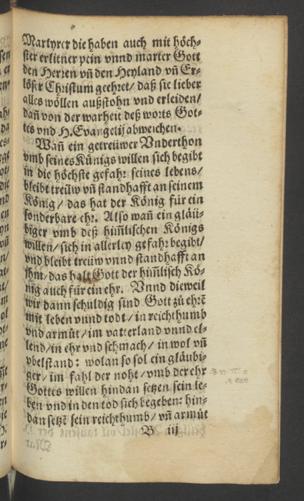 Martyrer die haben auch mit höch-
ster erlitner pein vnnd marter Gott
den Herren vñ den Heyland vñ Er-
löser Christum geehret/ daß sie lieber
alles wöllen außstohn vnd erleiden/
dañ von der warheit deß worts Got-
tes vnd H. Euangelij abweichen.
Wañ ein getreüwer Vnderthon
vmb seines Künigs willen sich begibt
in die höchste gefahr seines lebens/
bleibt treüw vñ standhafft an seinem
König/ das hat der König für ein
sonderbare ehr. Also wañ ein gläü-
biger vmb deß him̃lischen Königs
willen/ sich in allerley gefahr begibt/
vnd bleibt treüw vnnd standhafft an
ihm/ das halt Gott der him̃lisch Kö-
nig auch für ein ehr. Vnnd dieweil
wir dann schuldig sind Gott zů ehrẽ
mit leben vnnd todt/ in reichthumb
vnd armůt/ im vatterland vnnd el-
lend/ in ehr vnd schmach/ in wol vñ
vbelstand: wolan so sol ein gläubi-
ger/ im fahl der noht/ vmb der ehr
Gottes willen hindan setzen sein le-
ben vnd in den tod sich begeben: hin-
dan setzẽ sein reichthumb/ vñ armůt
B iij